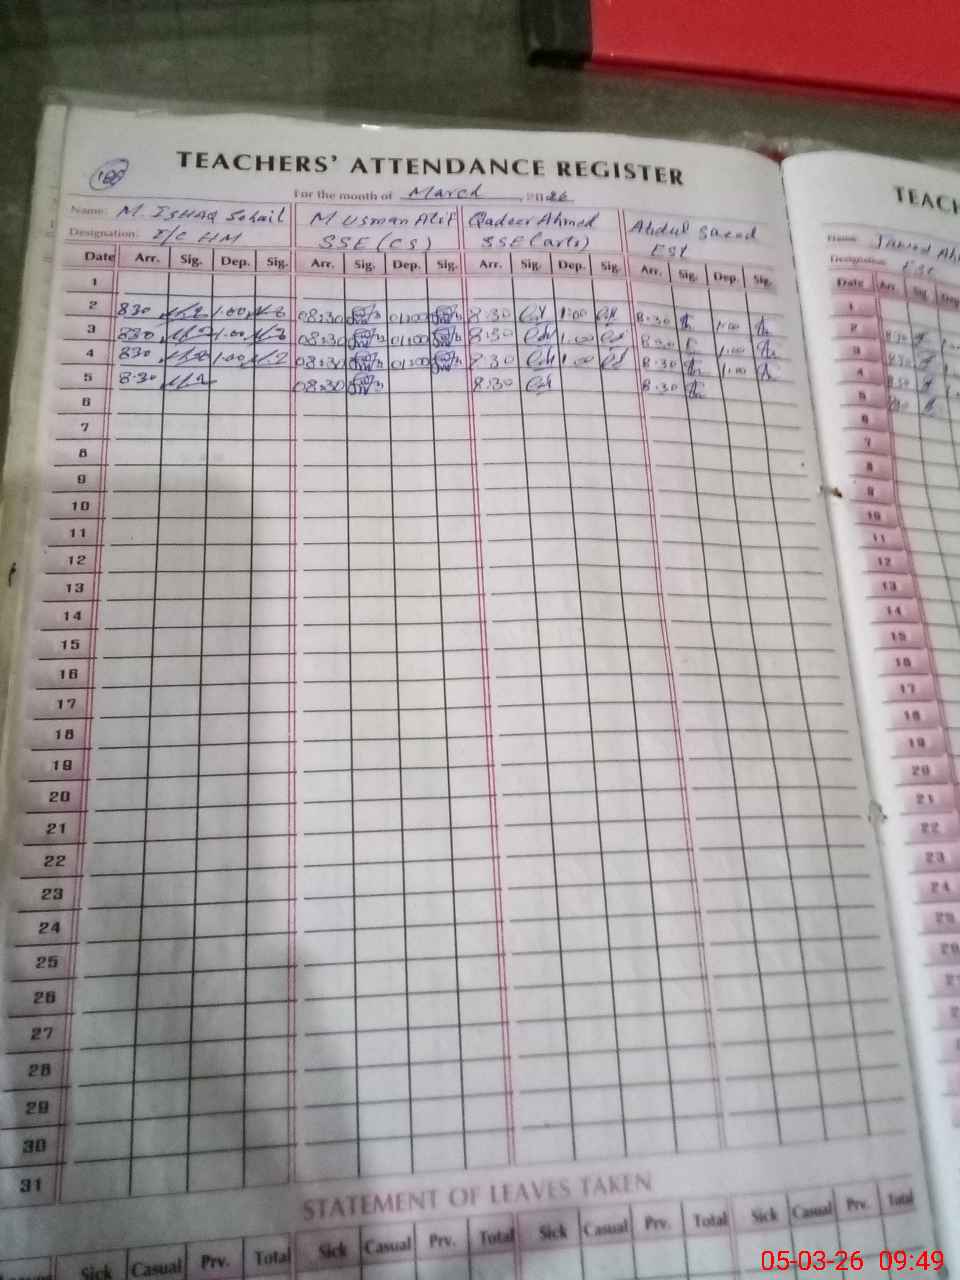 TEACHERS' ATTENDANCE REGISTER
For the month of March 2026
Name: M. Ishaq Sohail M Usman Atif Qadeer Ahmed Abdul Saeed
Designation: I/C HM SSE (CS) SSE (arts) EST
Date Arr. Sig. Dep. Sig. Arr. Sig. Dep. Sig. Arr. Sig. Dep. Sig. Arr. Sig. Dep. Sig.
1
2 830 1.00 08:30 01:00 8:30 1:00 8.30 1.00
3 830 1.00 08:30 01:00 8:30 1.00 8.30 1.00
4 830 1.00 08:30 01:00 8:30 1.00 8.30 1.00
5 8.30 08:30 8:30 8.30
6
7
8
9
10
11
12
13
14
15
16
17
18
19
20
21
22
23
24
25
26
27
28
29
30
31
STATEMENT OF LEAVES TAKEN
Sick Casual Prv. Total Sick Casual Prv. Total Sick Casual Prv. Total Sick Casual Prv. Total
TEACH
Name:
Designation: EST
Date Arr. Sig. Dep
1
2
3
4
5
6
7
8
9
10
11
12
13
14
15
16
17
18
19
20
21
22
23
24
05-03-26 09:49